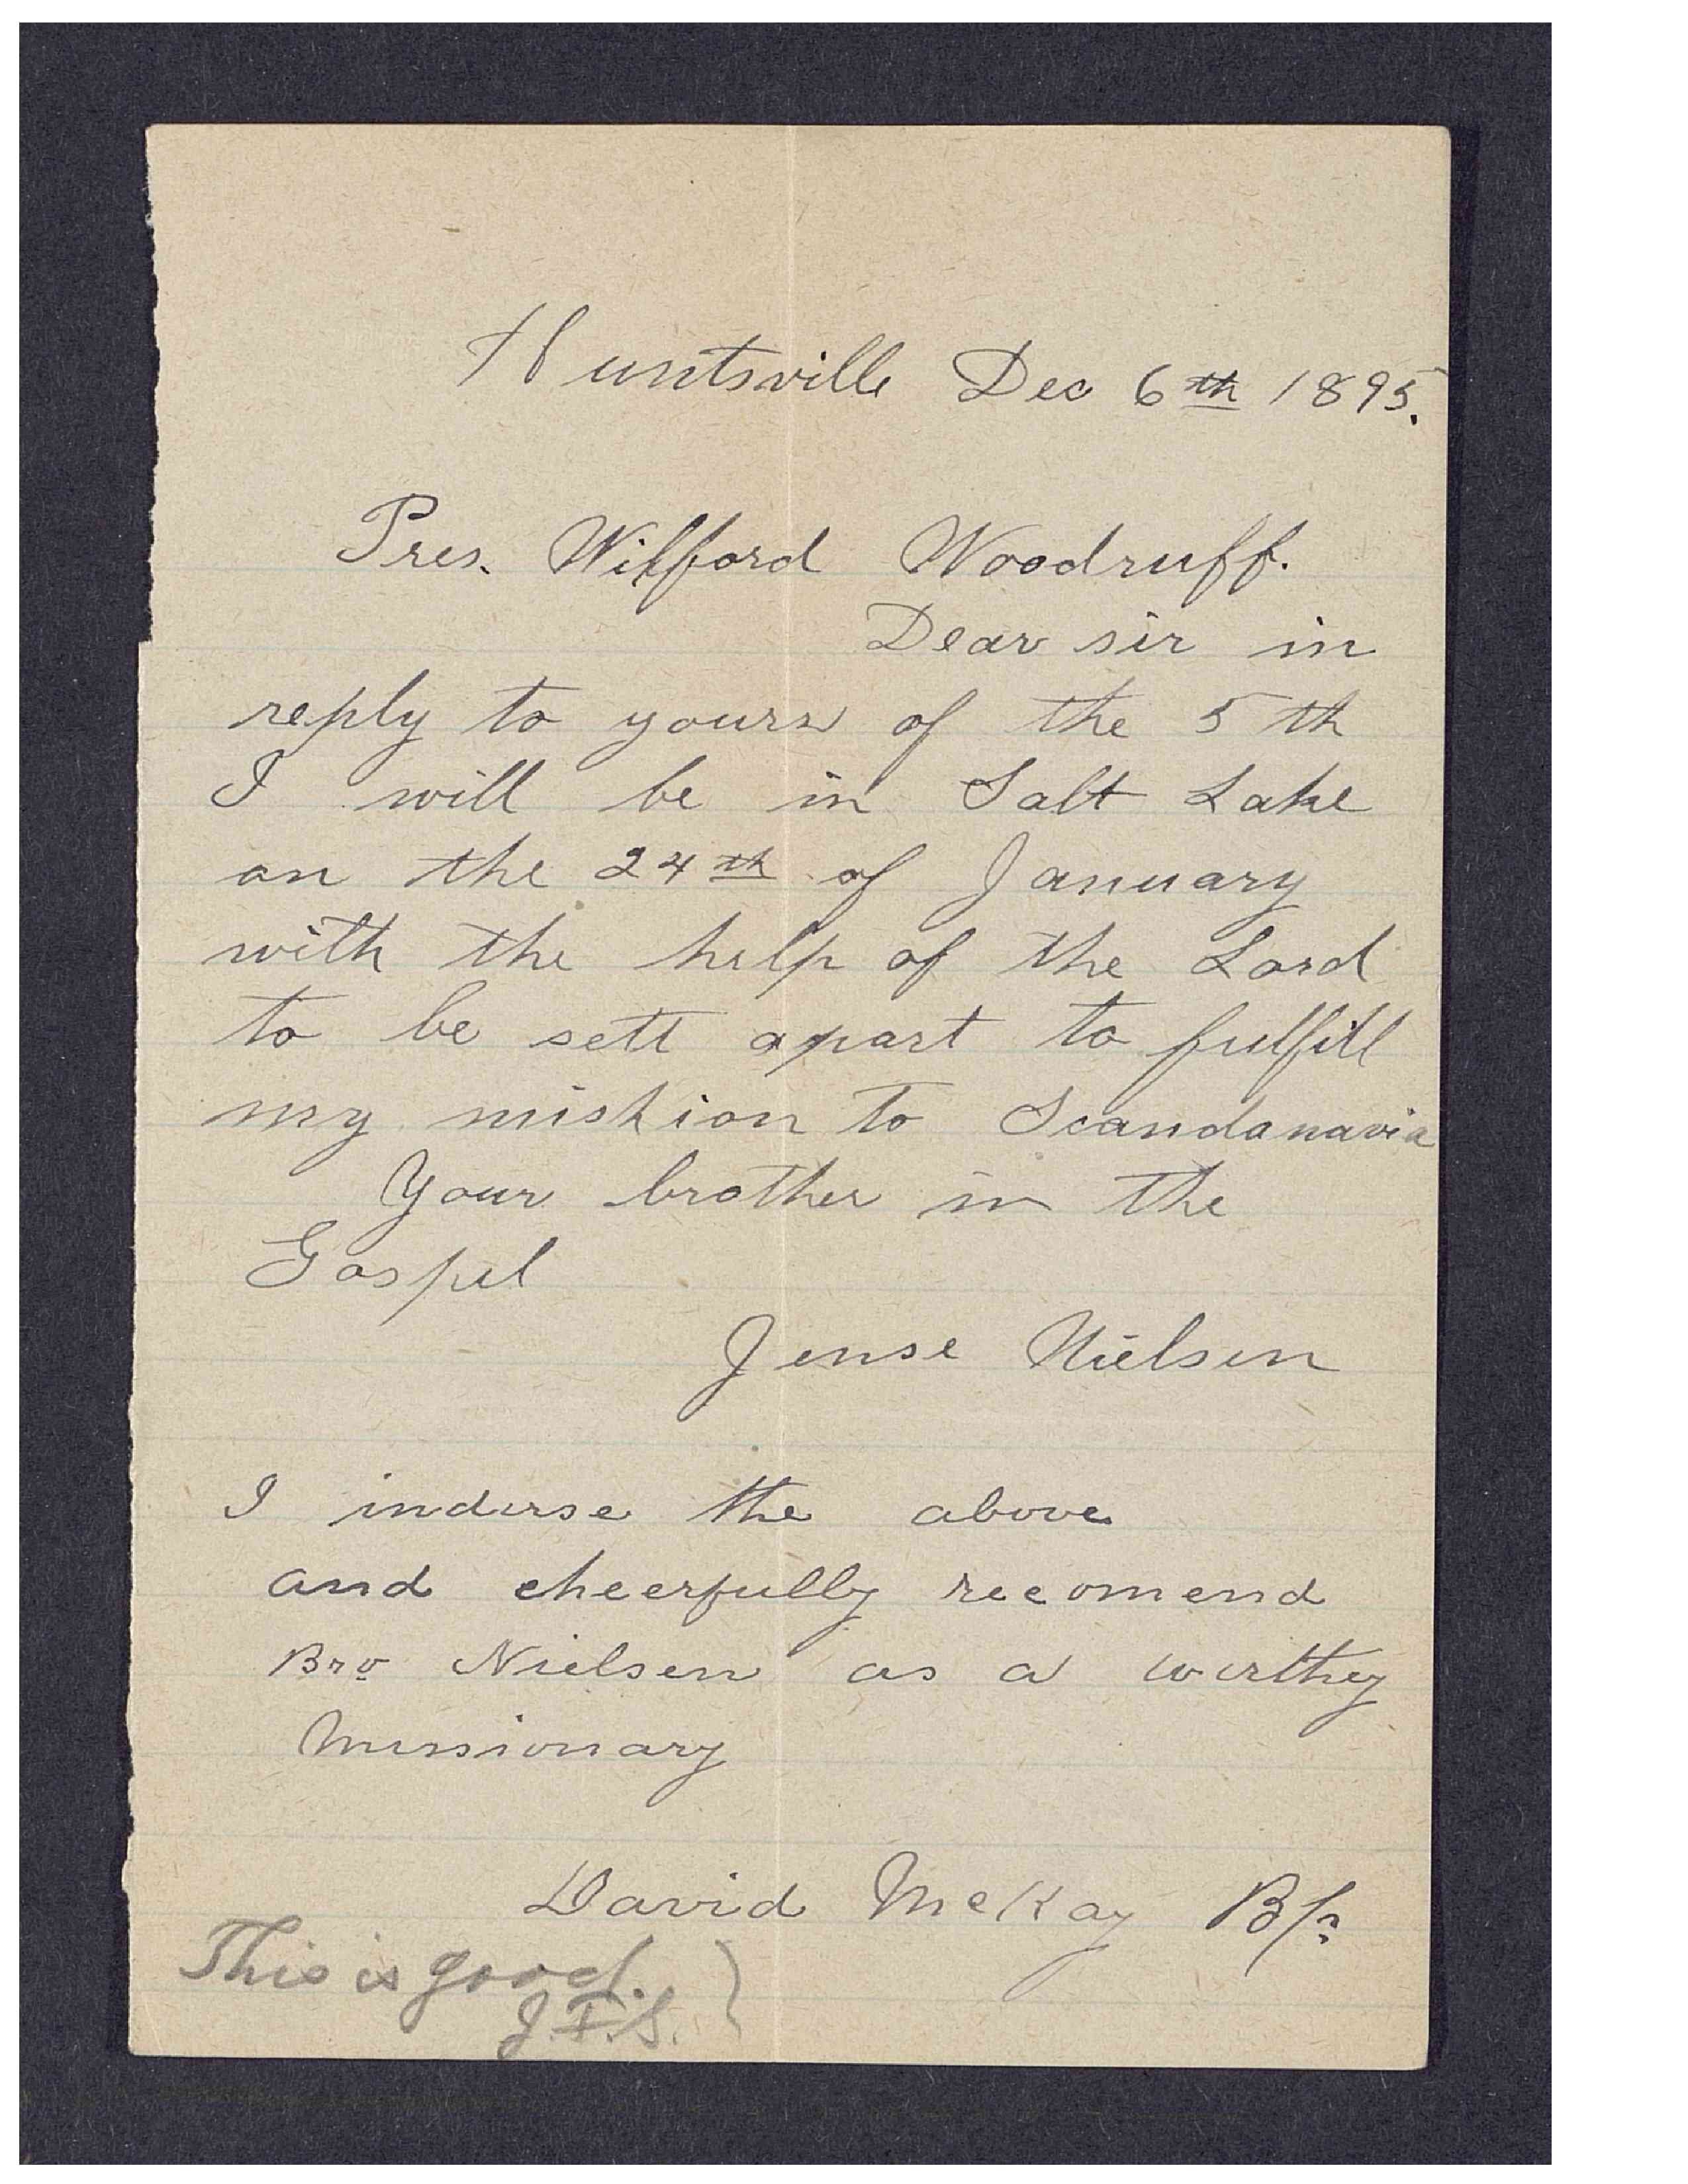 Huntsville Dec 6th 1895.
Pres. Wilford Woodruff.
Dear sir in
reply to yours of the 5th
I will be in Salt Lake
on the 24th of January
with the help of the Lord
to be sett apart to fulfill
my mishion to Scandanavia
Your brother in the
Gospel
Jense Nielsen
I indorse the above
and cheerfully recomend
Bro Nielsen as a worthy
Missionary
David McKay Bp.
This is good.
J.F.S.